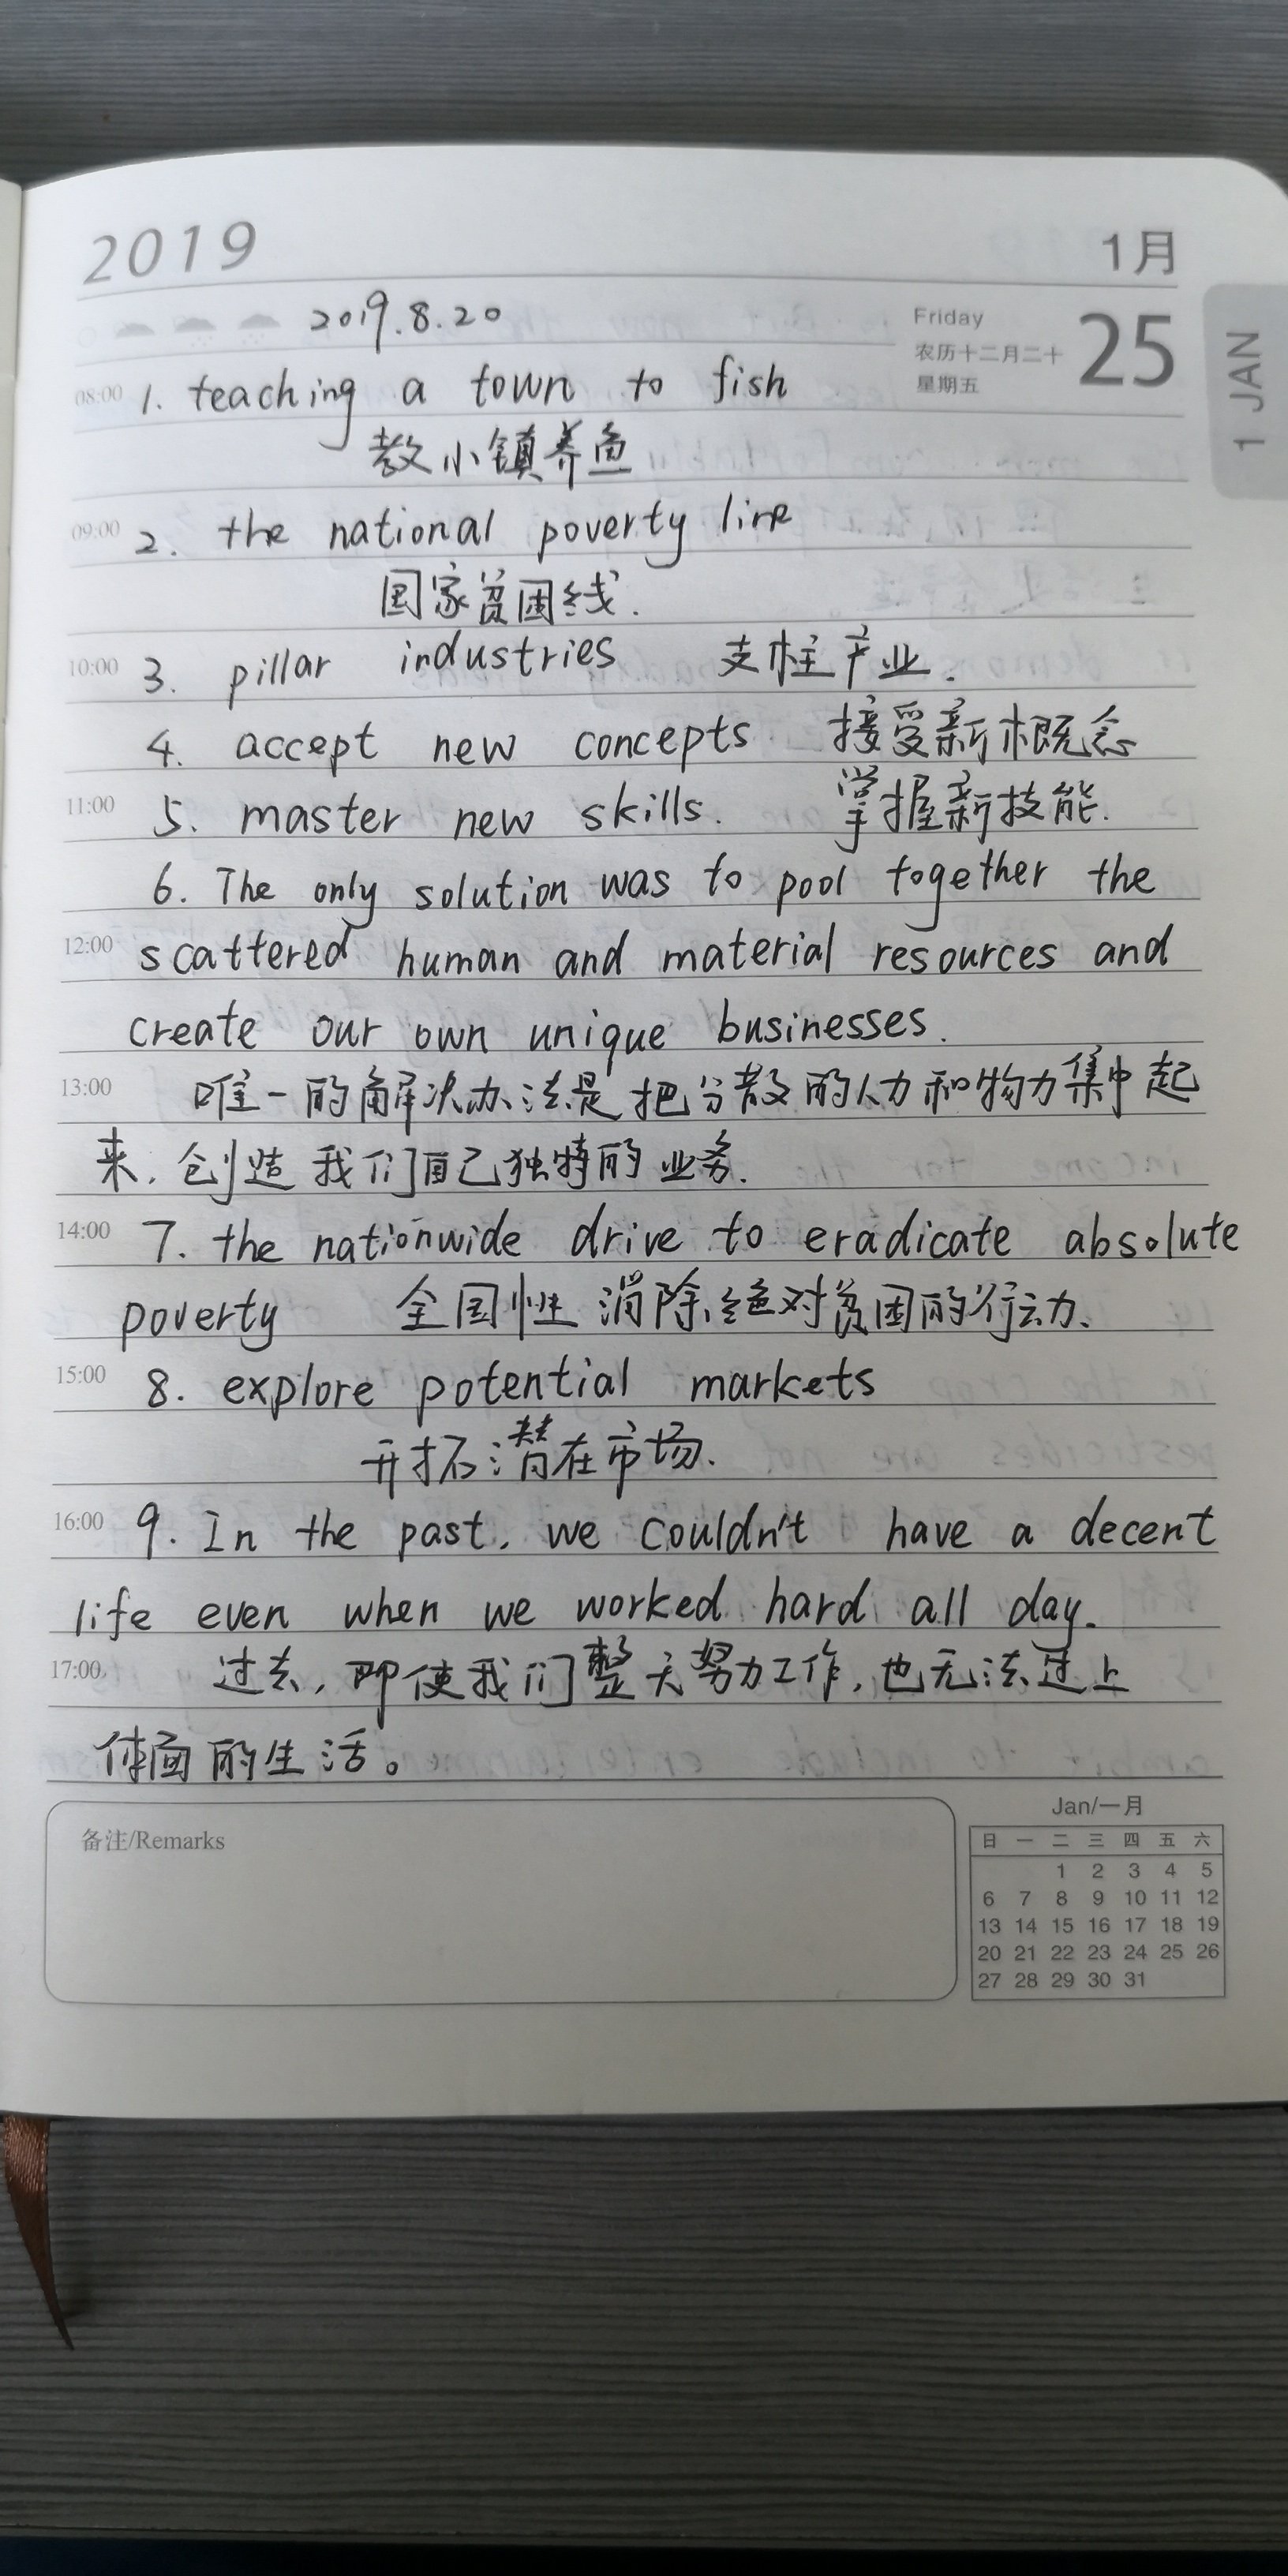 2019
1月
2019.8.20
Friday
农历十二月二十
星期五
25
1 JAN
08:00 1. teaching a town to fish
教小镇养鱼
09:00 2. the national poverty line
国家贫困线.
10:00 3. pillar industries 支柱产业.
4. accept new concepts 接受新概念
11:00 5. master new skills. 掌握新技能.
6. The only solution was to pool together the
12:00 scattered human and material resources and
create our own unique businesses.
13:00 唯一的解决办法是把分散的人力和物力集中起
来,创造我们自己独特的业务.
14:00 7. the nationwide drive to eradicate absolute
poverty 全国性消除绝对贫困的行动.
15:00 8. explore potential markets
开拓潜在市场.
16:00 9. In the past, we couldn't have a decent
life even when we worked hard all day.
17:00 过去,即使我们整天努力工作,也无法过上
体面的生活。
备注/Remarks
Jan/一月
日 一 二 三 四 五 六
1 2 3 4 5
6 7 8 9 10 11 12
13 14 15 16 17 18 19
20 21 22 23 24 25 26
27 28 29 30 31